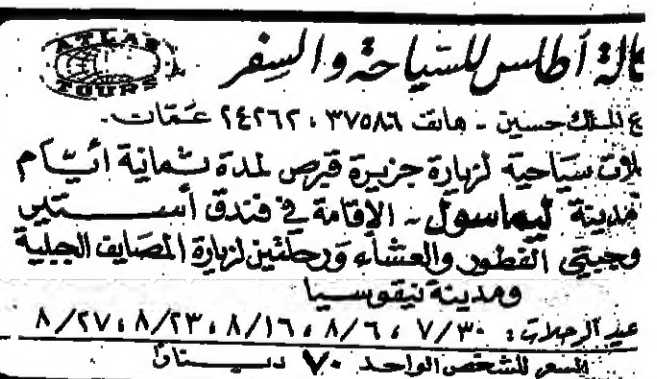 ATLAS
TOURS
الة أطلس للسياحة والسفر
ع الملك حسين - هاتف ٣٧٥٨٦ ، ٢٤٢٦٢ عمّات -
لات سياحية لزيارة جزيرة قبرص لمدة ثمانية أيام
مدينة ليماسول - الإقامة في فندق أستير
وجبتي الفطور والعشاء ورحلتين لزيارة المصايف الجبلية
ومدينة نيقوسيا
الرحلات : ٧/٣٠ ، ٨/٦ ، ٨/١٦ ، ٨/٢٣ ، ٨/٢٧
السعر للشخص الواحد ٧٠